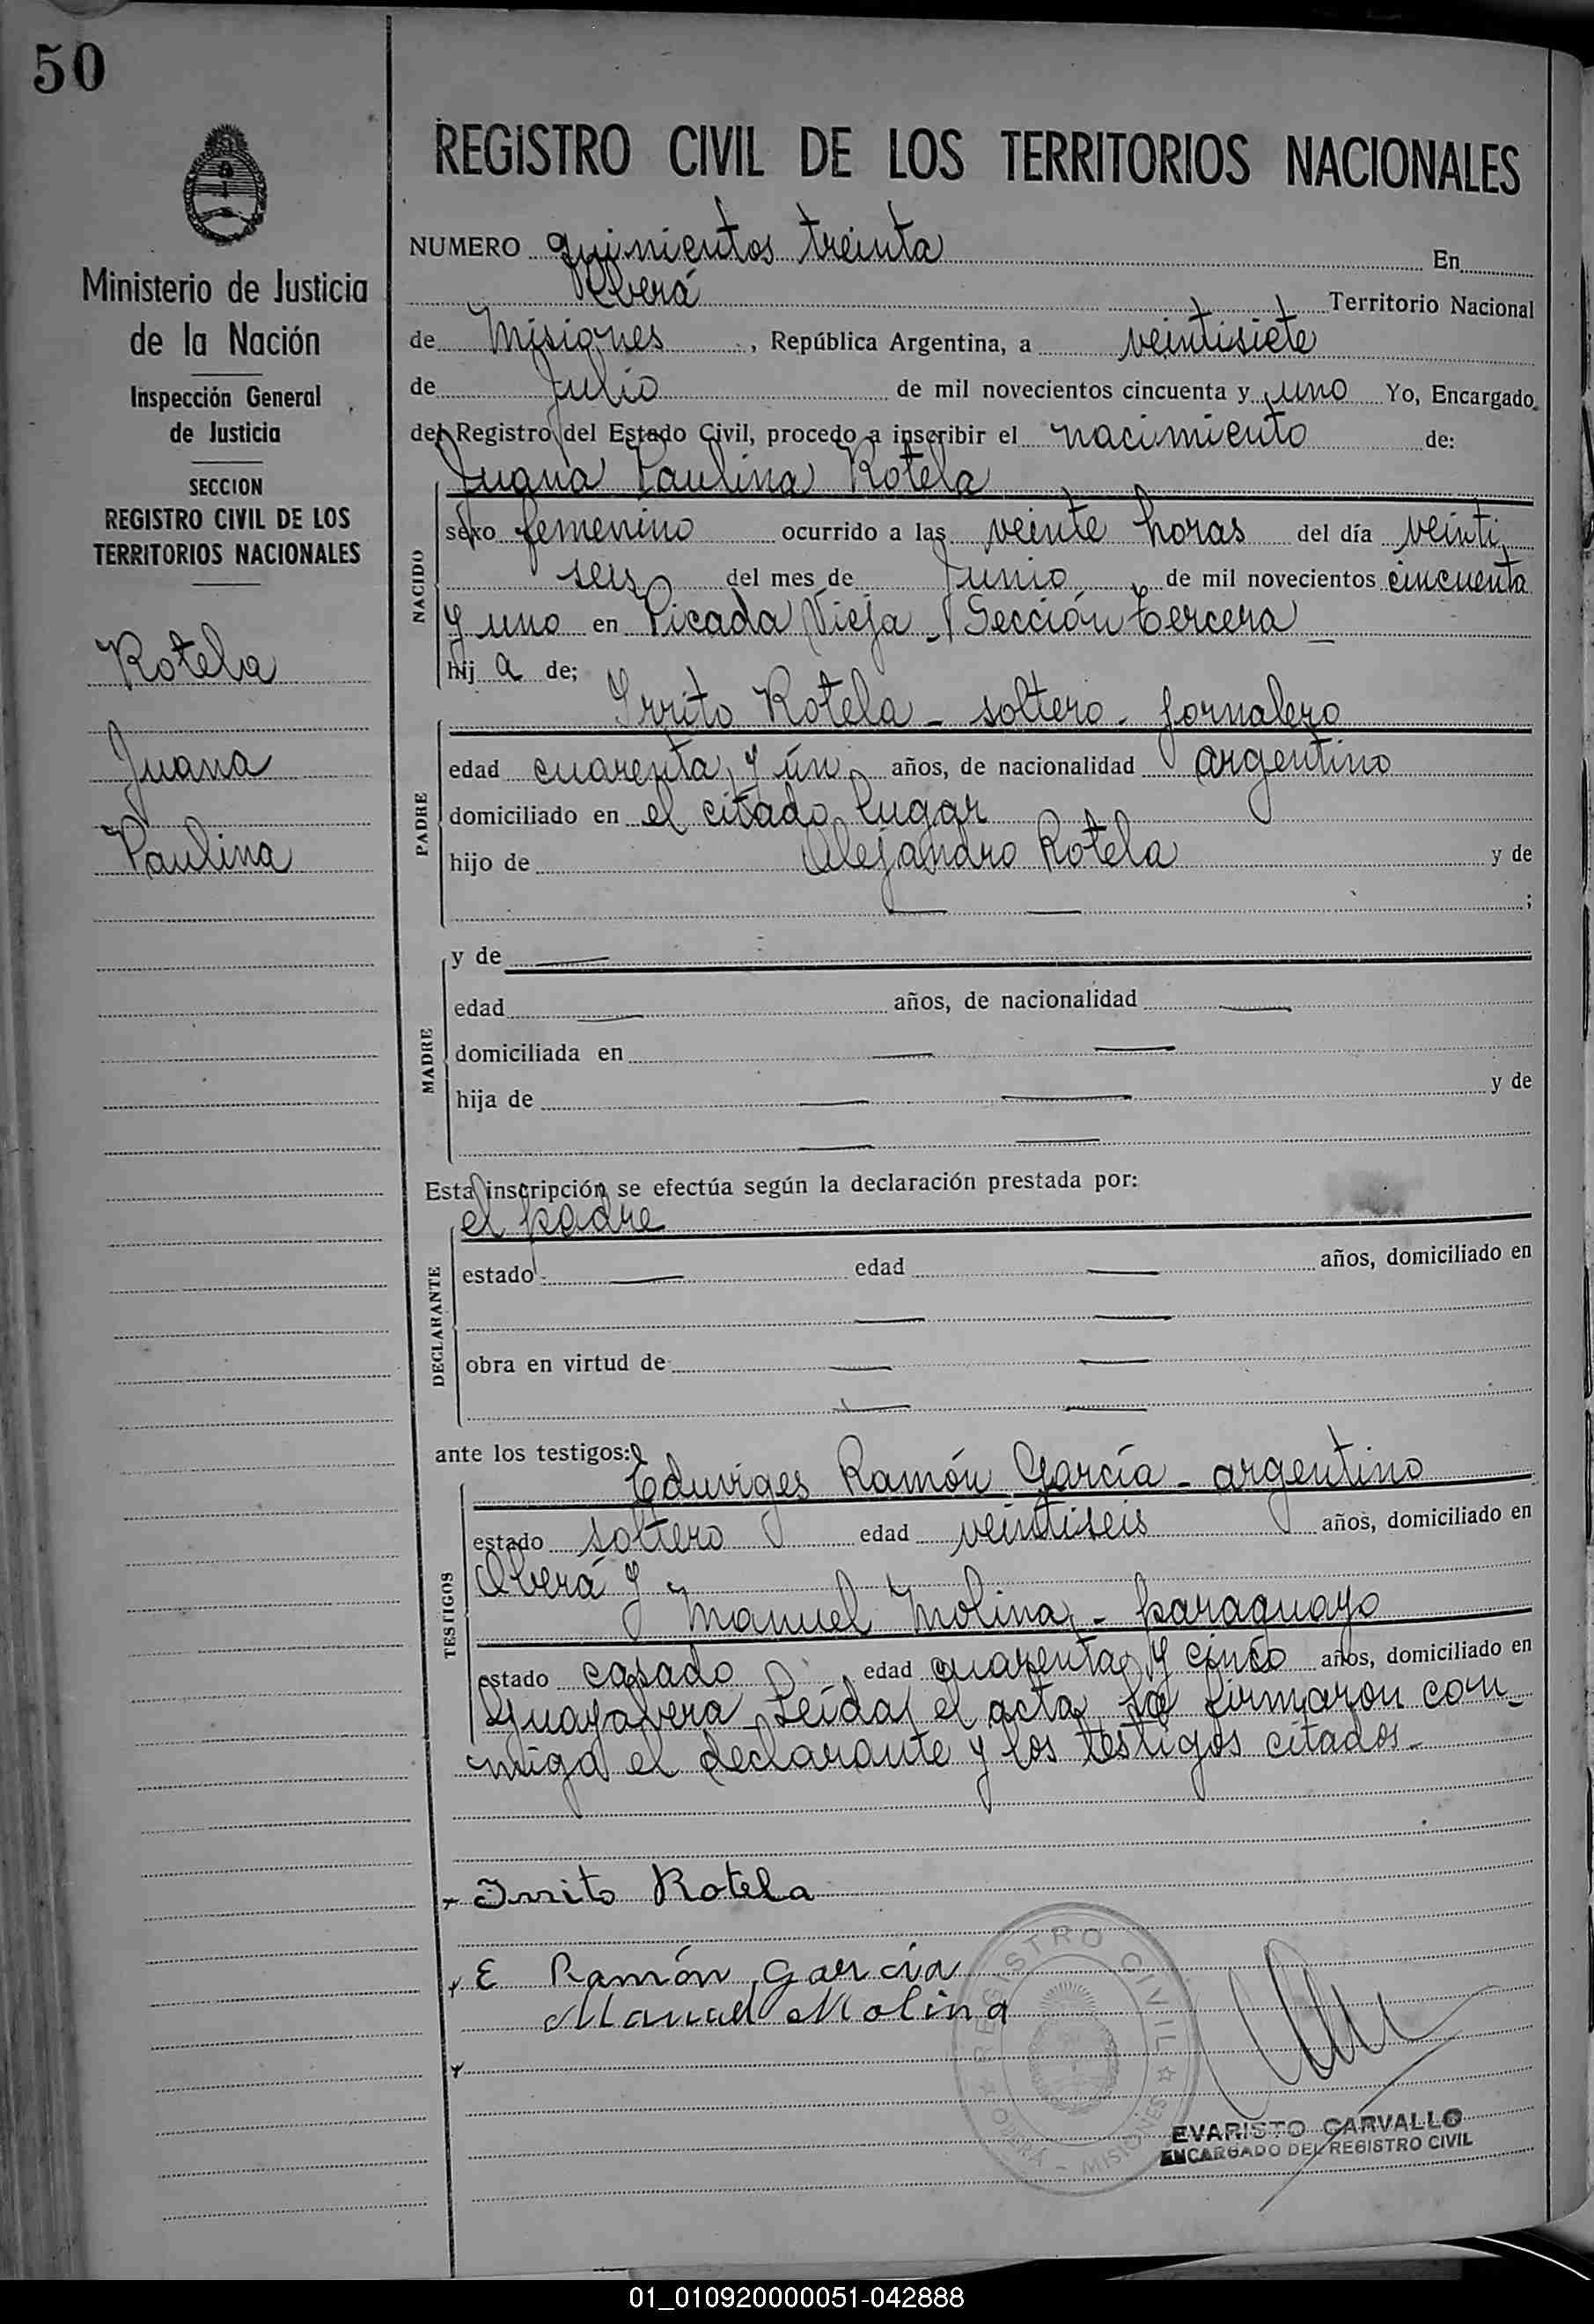 50
REGISTRO CIVIL DE LOS TERRITORIOS NACIONALES
Ministerio de Justicia
de la Nación
Inspección General
de Justicia
SECCION
REGISTRO CIVIL DE LOS
TERRITORIOS NACIONALES
Rotela
Juana
Paulina
NUMERO quinientos treinta En
Oberá Territorio Nacional
de Misiones, República Argentina, a veintisiete
de Julio de mil novecientos cincuenta y uno Yo, Encargado
del Registro del Estado Civil, procedo a inscribir el nacimiento de:
Juana Paulina Rotela
NACIDO
sexo femenino ocurrido a las veinte horas del día veinti
seis del mes de Junio de mil novecientos cincuenta
y uno en Picada Vieja - Sección Tercera -
hij a de;
Irrito Rotela - soltero - jornalero
PADRE
edad cuarenta y ún años, de nacionalidad argentino
domiciliado en el citado lugar
hijo de Alejandro Rotela y de
— — ;
MADRE
y de —
edad — años, de nacionalidad —
domiciliada en — —
hija de — — y de
— —
Esta inscripción se efectúa según la declaración prestada por:
el padre
DECLARANTE
estado — edad — años, domiciliado en
— —
obra en virtud de — —
— —
ante los testigos:
Eduviges Ramón García - argentino
TESTIGOS
estado soltero edad veintiseis años, domiciliado en
Oberá y
Manuel Molina - paraguayo
estado casado edad cuarenta y cinco años, domiciliado en
Guayabera Leída el acta la firmaron con-
migo el declarante y los testigos citados -
Irrito Rotela
E Ramón Garcia
Manuel Molina
REGISTRO CIVIL
OBERÁ - MISIONES
EVARISTO CARVALLO
ENCARGADO DEL REGISTRO CIVIL
01_010920000051-042888